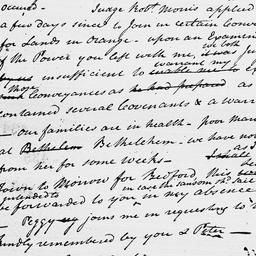 occured — Judge Robt. Morris applied
a few days since to join in certain Conve
for Lands in Orange — upon an Examin
of the Power you left with me, we both
insufficient to warrant my
those Conveyances as he had prepared as
contained several Covenants & a warr
— Our families are in health — poor Mar
at Bethelehem — we have not
from her for some Weeks —
Town to Morrow for Bedford, this
intended to in case the ransom shd. fail
be forwarded to you in my absence
— Peggy joins me in requesting to
kindly remembered by you & Peter —